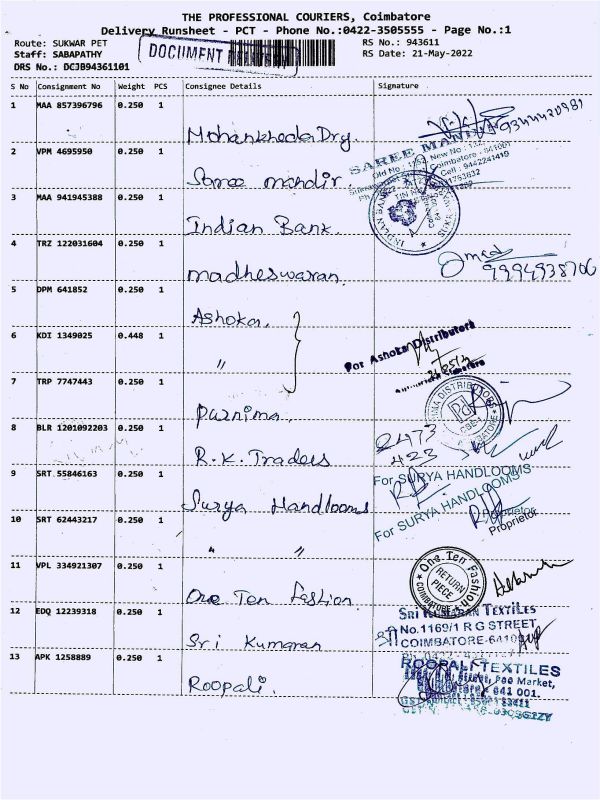 THE PROFESSIONAL COURIERS, Coimbatore
Delivery Runsheet - PCT - Phone No.:0422-3505555 - Page No.:1
Route: SUKWAR PET RS No.: 943611
Staff: SABAPATHY DOCUMENT RS Date: 21-May-2022
DRS No.: DCJB94361101
S No Consignment No Weight PCS Consignee Details Signature
1 MAA 857396796 0.250 1
Mohankheda Dry.
2 VPM 4695950 0.250 1
Saree mandir.
SAREE MANDIR
Coimbatore - 641001
Cell : 9442241419
3 MAA 941945388 0.250 1
Indian Bank.
INDIAN BANK
4 TRZ 122031604 0.250 1
madheswaran.
9994938706
5 DPM 641852 0.250 1
Ashoka.
6 KDI 1349025 0.448 1
"
For Ashoka Distributors
7 TRP 7747443 0.250 1
Purnima.
8 BLR 1201092203 0.250 1
R.K. Traders
2473
423
9 SRT 55846163 0.250 1
Surya Handlooms
For SURYA HANDLOOMS
10 SRT 62443217 0.250 1
" "
For SURYA HANDLOOMS
Proprietor
11 VPL 334921307 0.250 1
One Ten Fashion
One Ten Fashion
RETURN
PIECE
COIMBATORE
12 EDQ 12239318 0.250 1
Sri Kumaran
SRI KUMARAN TEXTILES
No.1169/1 R G STREET,
COIMBATORE-6410
13 APK 1258889 0.250 1
Roopali.
ROOPALI TEXTILES
Market,
641 001.